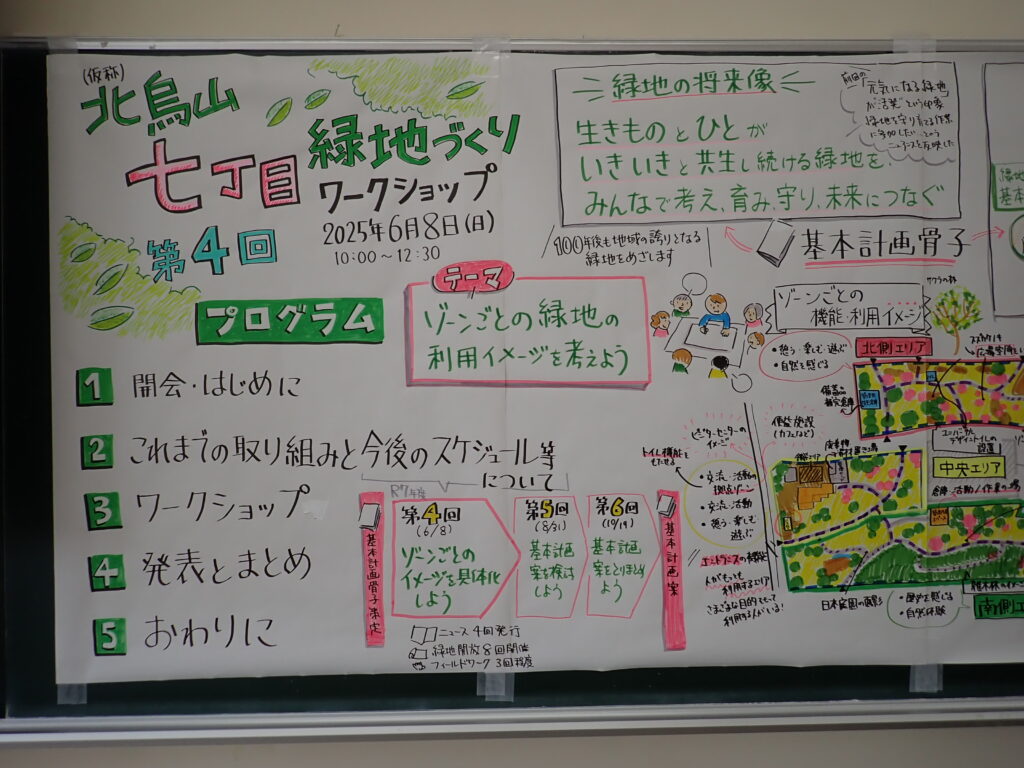 (仮称)
北烏山
七丁目
緑地づくり
ワークショップ
第4回
2025年6月8日(日)
10:00〜12:30
プログラム
1 開会・はじめに
2 これまでの取り組みと今後のスケジュール等
について
3 ワークショップ
4 発表とまとめ
5 おわりに
テーマ
ゾーンごとの緑地の
利用イメージを考えよう
R7年度
基本計画骨子策定
第4回
(6/8)
ゾーンごとの
イメージを具体化
しよう
第5回
(8/31)
基本計画
案を検討
しよう
第6回
(10/19)
基本計画
案をとりまとめ
よう
基本計画案
ニュース 4回発行
緑地開放 8回開催
フィールドワーク 3回程度
緑地の将来像
生きものとひとが
いきいきと共生し続ける緑地を
みんなで考え、育み、守り、未来につなぐ
前回の
元気になる緑地
が"活発"という印象
緑地を守り育てる作業
に参加したい
100年後も地域の誇りとなる
緑地をめざします
基本計画骨子
ゾーンごとの
機能・利用イメージ
サクラの林
北側エリア
・憩う・楽しむ・遊ぶ
・自然を感じる
ビジターセンターの
イメージ
便益施設
(カフェなど)
トイレ機能も
もたせる
・交流・活動の
拠点ゾーン
・交流・活動
・憩う・楽しむ
遊ぶ
エントランスの機能
人がもっとも
利用するエリア
さまざまな目的をもって
利用する人がいる!
中央エリア
倉庫・活動/作業の場
日本庭園の面影
・歴史を感じる
・自然体験
南側エ
基本